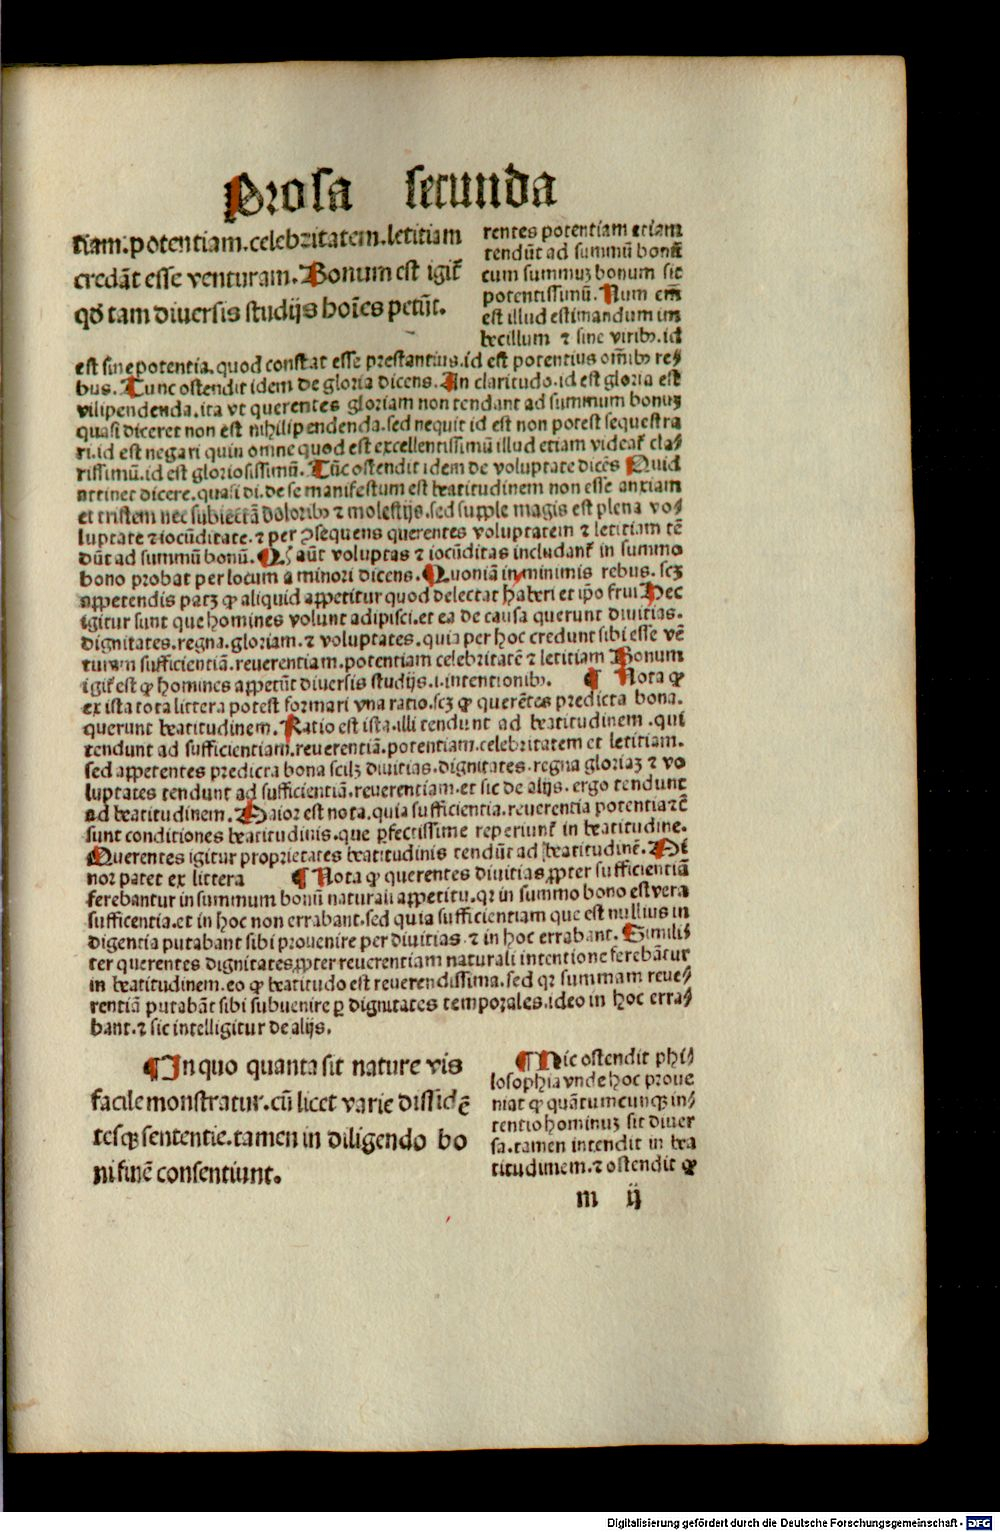 Prosa secunda
tiam.potentiam.celebritatem.letitiam
credãt esse venturam.Bonum est igit᷑
qđ tam diuersis studijs hoĩes petũt.
rentes potentiam etiam
tendũt ad summũ bonũ
cum summuꝫ bonum sit
potentissimũ.Num em̃
est illud estimandum im
becillum ⁊ sine viribꝰ.id
est sine potentia.quod constat esse prestantius.id est potentius om̃ibꝰ re⸗
bus.Tunc ostendit idem de gloria dicens.An claritudo.id est gloria est
vilipendenda.ita vt querentes gloriam non tendant ad summum bonuꝫ
quasi diceret non est nihilipendenda.sed nequit id est non potest sequestra
ri.id est negari quin omne quod est excellentissimũ illud etiam videat᷑ cla⸗
rissimũ.id est gloriosissimũ.Tũc ostendit idem de voluptate dicẽs Quid
attinet dicere.quasi di.de se manifestum est beatitudinem non esse anxiam
et tristem nec subiectã doloribꝰ ⁊ molestijs.sed supple magis est plena vo⸗
luptate ⁊ iocũditate.⁊ per ↄsequens querentes voluptatem ⁊ letitiam tẽ
dũt ad summũ bonũ.¶ Qꝫ aũt voluptas ⁊ iocũditas includant᷑ in summo
bono probat per locum a minori dicens.¶Quoniã in minimis rebus.scꝫ
appetendis patꝫ ꝙ aliquid appetitur quod delectat haberi et ip̃o frui Hec
igitur sunt que homines volunt adipisci.et ea de causa querunt diuitias.
dignitates.regna.gloriam.⁊ voluptates.quia per hoc credunt sibi esse vẽ
turam sufficientiã.reuerentiam.potentiam celebritatẽ ⁊ letitiam Bonum
igit᷑ est ꝙ homines appetũt diuersis studijs.i.intentionibꝰ. ¶ Nota ꝙ
ex ista tota littera potest formari vna ratio.scꝫ ꝙ querẽtes predicta bona.
querunt beatitudinem.Ratio est ista.illi tendunt ad beatitudinem.qui
tendunt ad sufficientiam.reuerentiã.potentiam.celebritatem et letitiam.
sed appetentes predicta bona scilꝫ diuitias.dignitates.regna gloriaꝫ ⁊ vo
luptates tendunt ad sufficientiã.reuerentiam.et sic de alijs.ergo tendunt
ad beatitudinem.Maior est nota.quia sufficientia.reuerentia potentia ⁊cẽ
sunt conditiones beatitudinis.que ꝑfectissime reperiunt᷑ in beatitudine.
Querentes igitur proprietates beatitudinis tendũt ad beatitudinẽ.Mi
nor patet ex littera ¶ Nota ꝙ querentes diuitias ꝓpter sufficientiã
ferebantur in summum bonũ naturali appetitu.qꝛ in summo bono est vera
sufficentia.et in hoc non errabant.sed quia sufficientiam que est nullius in
digentia putabant sibi prouenire per diuitias.⁊ in hoc errabant.Simili⸗
ter querentes dignitates ꝓpter reuerentiam naturali intentione ferebãtur
in beatitudinem.eo ꝙ beatitudo est reuerendissima.sed qꝛ summam reue⸗
rentiã putabãt sibi subuenire ꝑ dignitates temporales.ideo in hoc erra⸗
bant.⁊ sic intelligitur de alijs.
¶In quo quanta sit nature vis
facile monstratur.cũ licet varie dissidẽ
tesqꝫ sententie.tamen in diligendo bo
ni finẽ consentiunt.
¶Hic ostendit phi⸗
losophia vnde hoc proue
niat ꝙ quãtumcunqꝫ in⸗
tentio hominuꝫ sit diuer
sa.tamen intendit in bea
titudinem.⁊ ostendit ꝙ
m ij
Digitalisierung gefördert durch die Deutsche Forschungsgemeinschaft - DFG